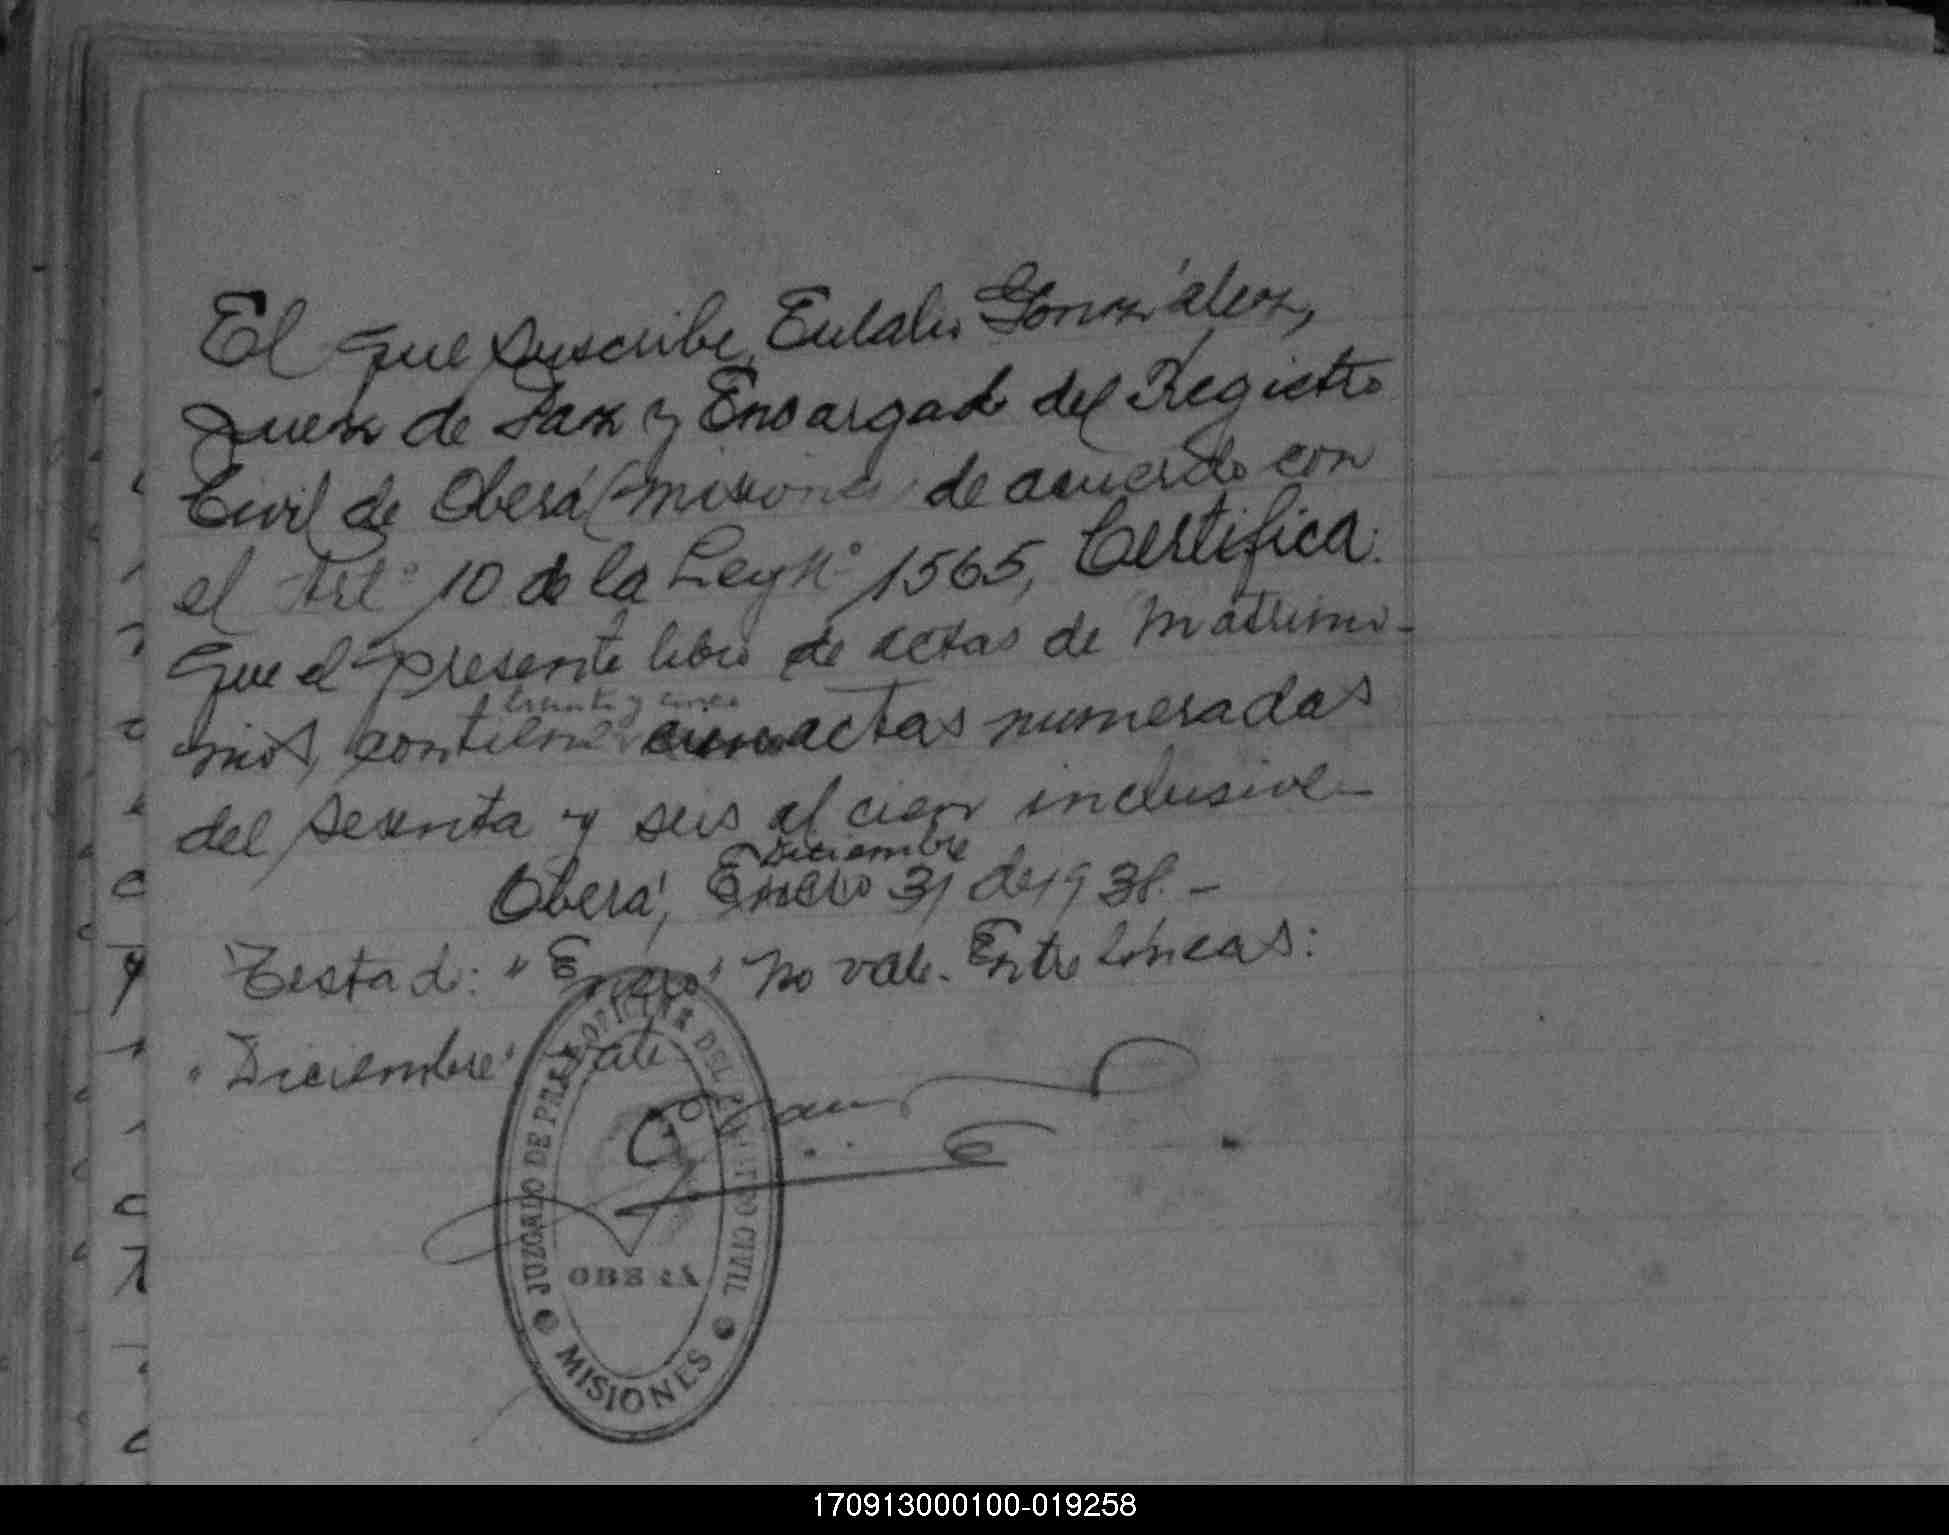 El que suscribe, Eulalio González,
Juez de Paz y Encargado del Registro
Civil de Oberá (Misiones) de acuerdo con
el Art.º 10 de la Ley Nº 1565, Certifica:
Que el presente libro de actas de matrimo-
treinta y cinco
nios, contiene actas numeradas
del sesenta y seis al cien inclusive—
Diciembre
Oberá, Enero 31 de 1938.—
Testado: "Enero" no vale. Entre líneas:
"Diciembre" vale
JUZGADO DE PAZ DEL REGISTRO CIVIL
OBERÁ
MISIONES
170913000100-019258